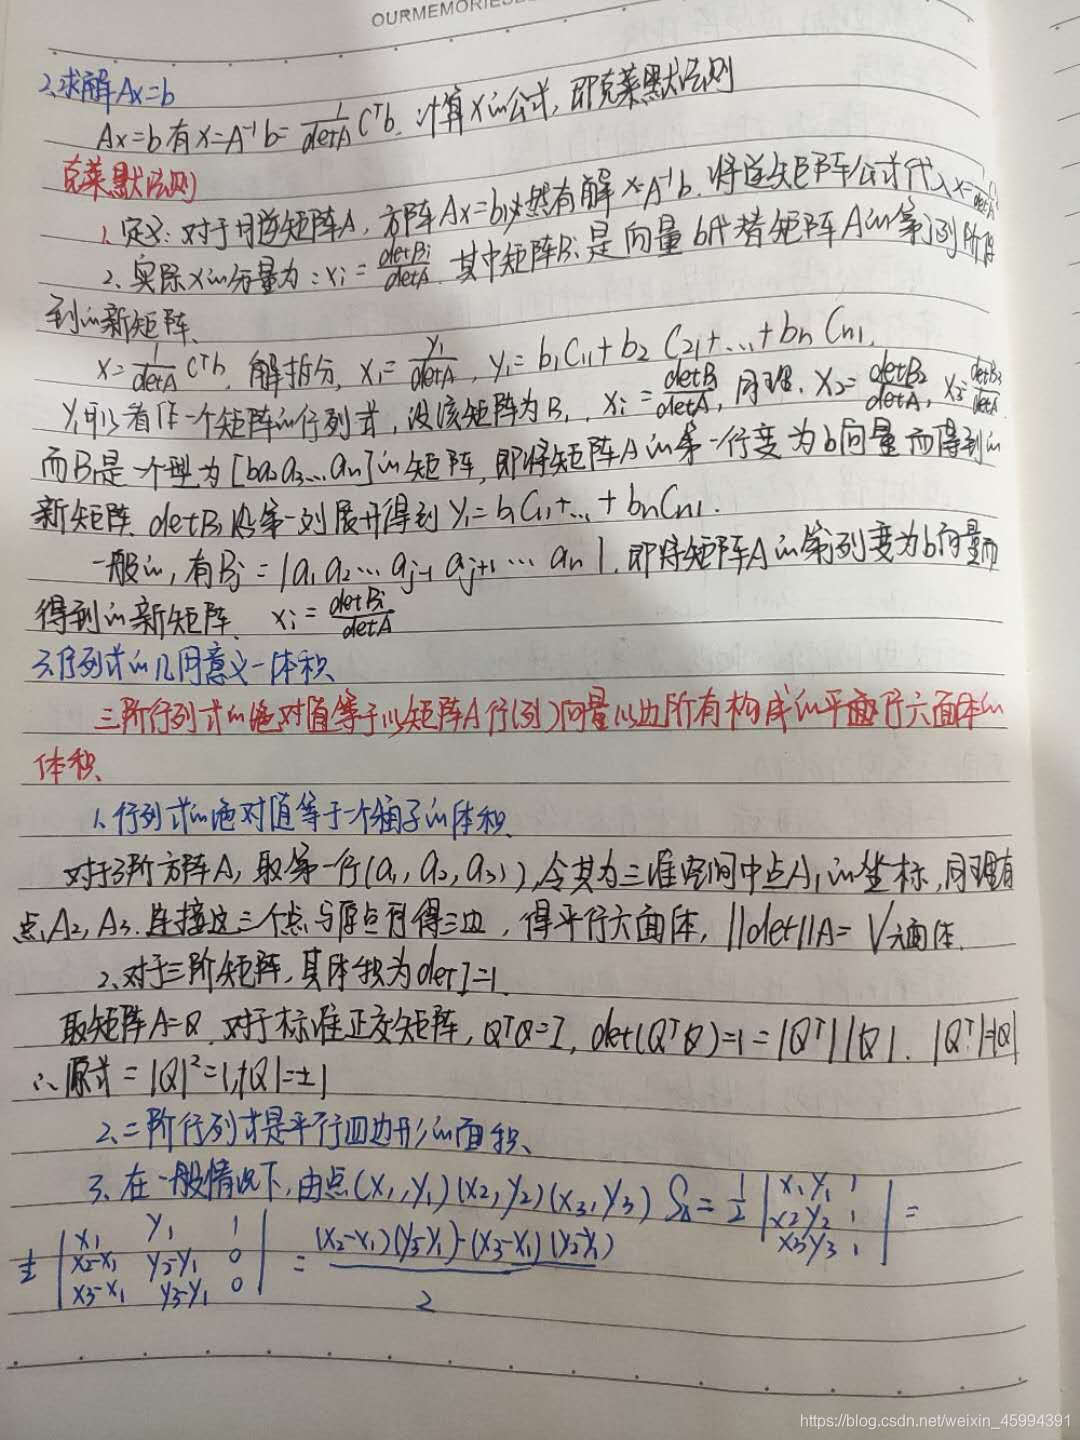 OURMEMORIES
2、求解Ax=b
Ax=b有x=A⁻¹b=1/detA Cᵀb. 计算x的公式, 即克莱默法则
克莱默法则
1. 定义: 对于可逆矩阵A, 方阵Ax=b必然有解x=A⁻¹b. 将逆矩阵公式代入x=
2、实际x的分量为: xi=detBi/detA. 其中矩阵Bi是向量b代替矩阵A的第i列所得
到的新矩阵、
x=1/detA Cᵀb. 解拆分, x₁=y₁/detA, y₁=b₁C₁₁+b₂C₂₁+...+bnCn₁.
y₁可以看作一个矩阵的行列式, 设该矩阵为B, xi=detB/detA, 同理, x₂=detB₂/detA, x₃=detB₃/detA.
而B₁是一个型为[ba₂a₃...an]的矩阵, 即将矩阵A的第一行变为b向量而得到的
新矩阵. detB₁ 第一列展开得到y₁=b₁C₁₁+...+bnCn₁.
一般的, 有Bj=|a₁ a₂... aj-1 aj+1 ... an|. 即将矩阵A的第i列变为b向量而
得到的新矩阵、 xi=detBi/detA
3.行列式的几何意义—体积
三阶行列式的绝对值等于以矩阵A行(列)向量以边所有构成的平面行六面体的
体积、
1. 行列式的绝对值等于一个箱子的体积、
对于3阶方阵A, 取第一行(a₁, a₂, a₃)), 令其为三维空间中点A₁的坐标, 同理有
点A₂, A₃. 连接这三个点与原点可得三边, 得平行六面体, ||det||A=V六面体.
2、对于三阶矩阵, 其体积为detI=1
取矩阵A=Q. 对于标准正交矩阵, QᵀQ=I, det(QᵀQ)=1=|Qᵀ||Q|. |Qᵀ|=|Q|
∴原式=|Q|²=1,|Q|=±1
2、二阶行列式是平行四边形的面积、
3. 在一般情况下, 由点(x₁,y₁)(x₂,y₂)(x₃,y₃) S△=1/2|x₁ y₁ 1 x₂ y₂ 1 x₃ y₃ 1|=
1/2|x₁ y₁ 1 x₂-x₁ y₂-y₁ 0 x₃-x₁ y₃-y₁ 0|=(x₂-x₁)(y₃-y₁)-(x₃-x₁)(y₂-y₁)/2
https://blog.csdn.net/weixin_45994391